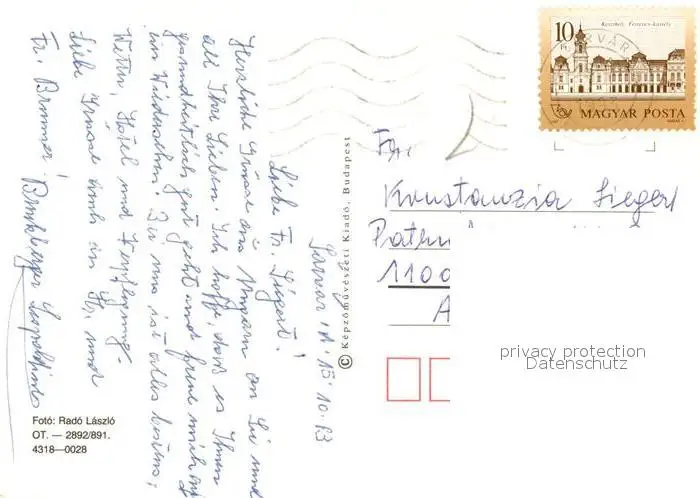 Sarvar, d. 15.10.93
Liebe Fr. Siegert!
Herzliche Grüsse aus Ungarn an Sie und
all Ihre Lieben. Ich hoffe, dass es Ihnen
gesundheitlich gut geht und freue mich auf
ein Wiedersehen. Bei uns ist alles bestens,
Wetter, Hotel und Verpflegung.
Liebe Grüsse auch an Hr. und
Fr. Brunner!
Leopoldine
© Képzőművészeti Kiadó, Budapest
Fotó: Radó László
OT. — 2892/891.
4318—0028
10 Ft
Keszthely, Festetics-kastély
MAGYAR POSTA
SÁRVÁR
Fr.
Konstanzia Siegert
1100
A
privacy protection
Datenschutz